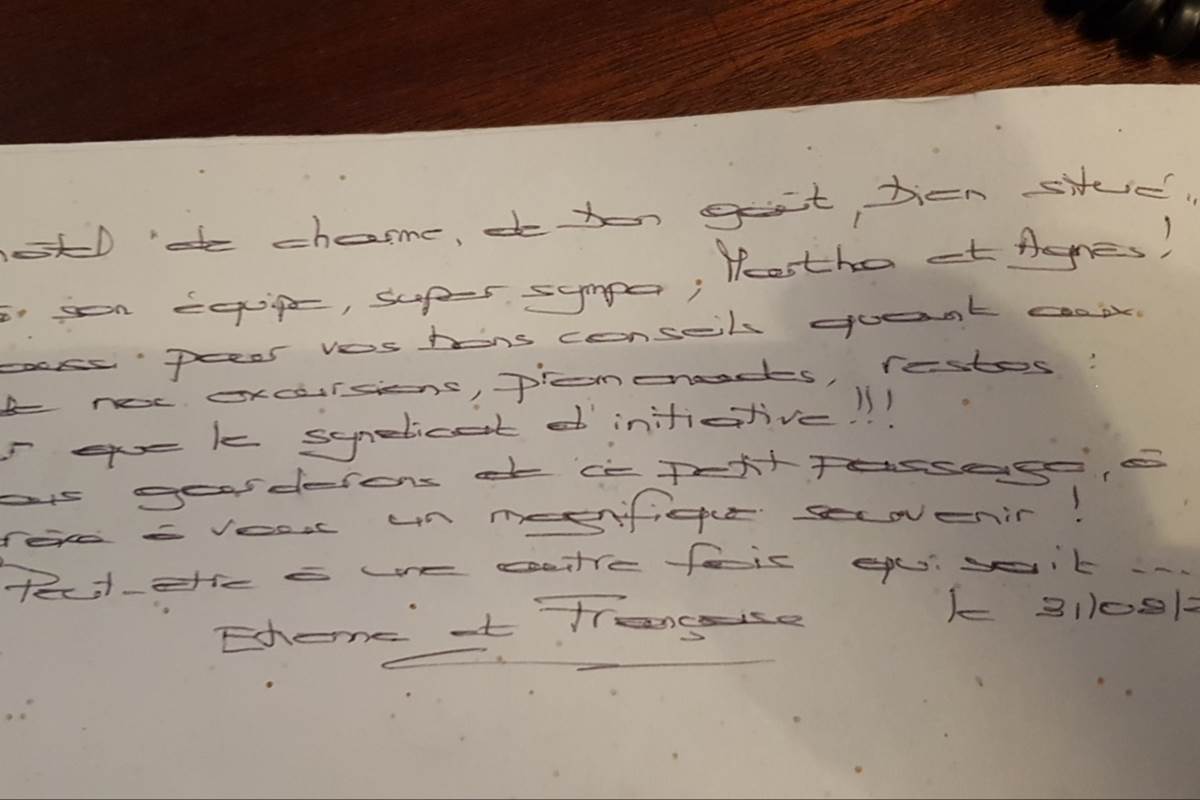 hôtel de charme, de bon goût, bien situé..
son équipe, super sympa, Martha et Agnès !
pour vos bons conseils quant aux
nos excursions, promenades, restos :
que le syndicat d'initiative !!!
garderons de ce petit passage, à
à vous un magnifique souvenir !
Peut-etre à une autre fois qui sait ...
Etienne et Françoise le 31/08/